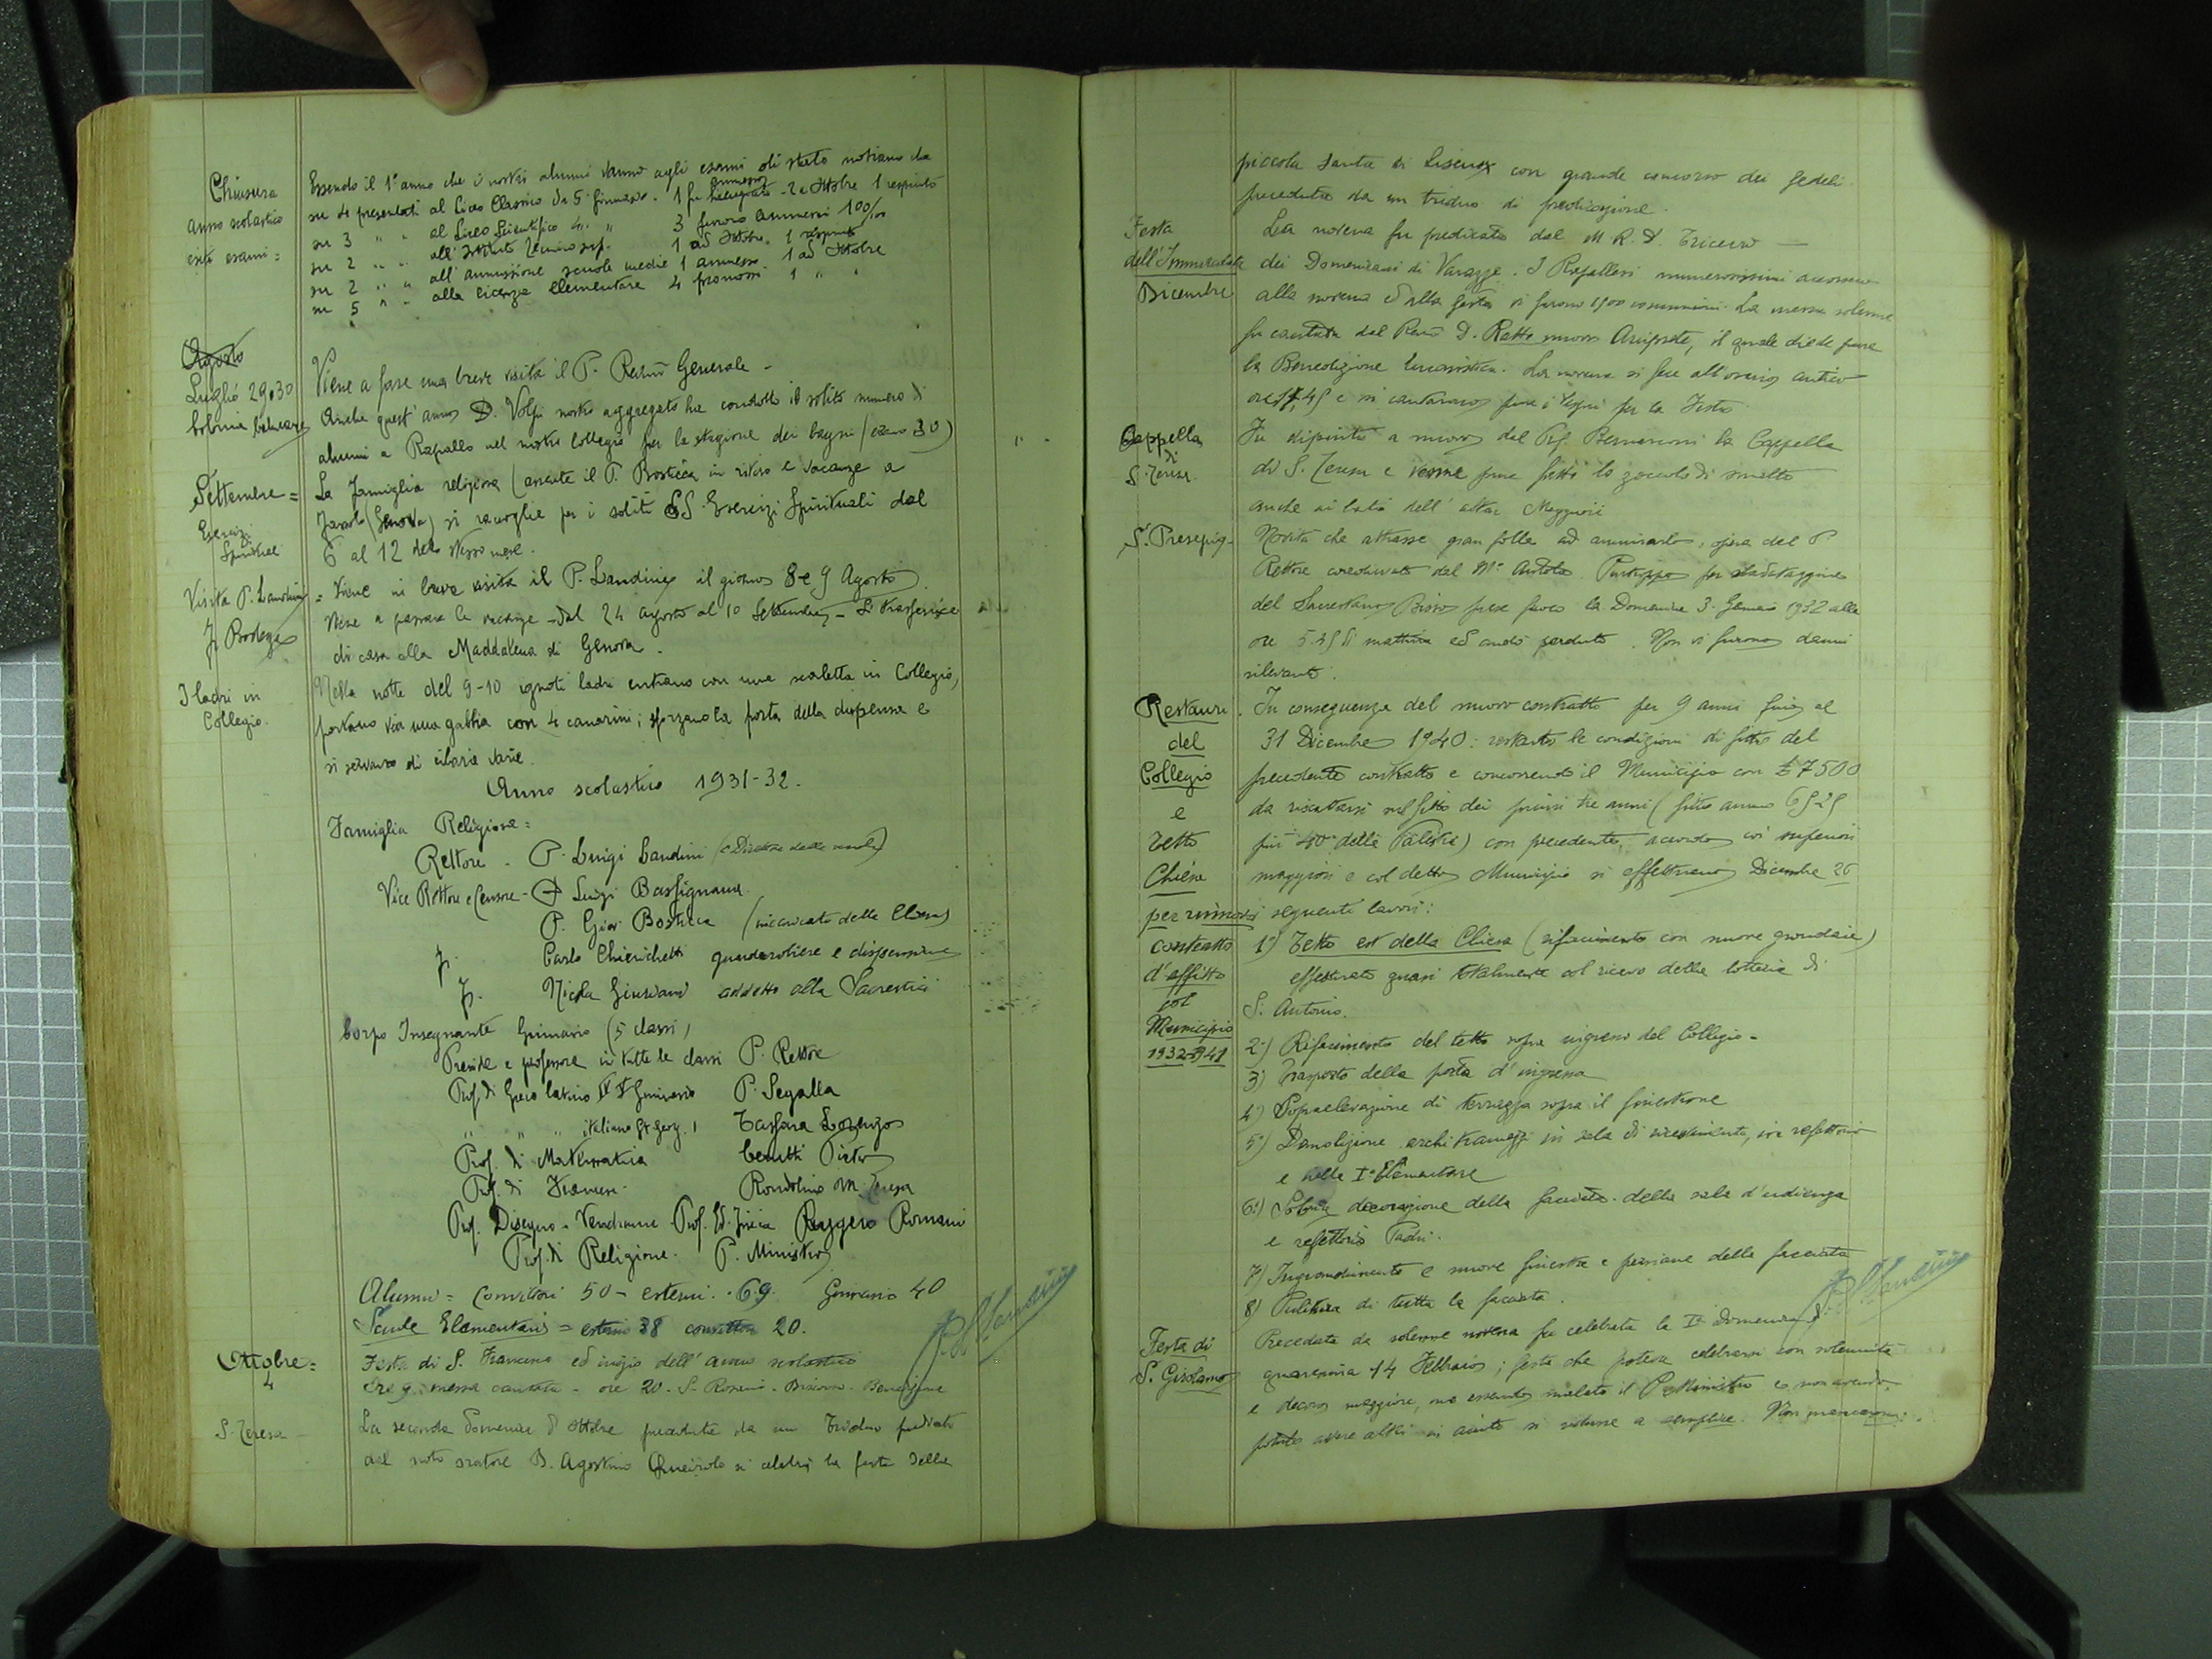 Chiusura
anno scolastico
esiti esami =
Essendo il 1° anno che i nostri alunni vanno agli esami di stato notiamo che
su 4 presentati al Liceo Classico da 5ª Ginnasio. 1 fu ammesso - 2 a Ottobre 1 respinto
su 3 " " al Liceo Scientifico 4. " 3 furono ammessi 100/100
su 2 " " all'Istituto Tecnico sup. 1 ad Ottobre. 1 respinto
su 2 " " all'ammissione scuole medie 1 ammesso. 1 ad Ottobre
su 5 " " alla licenza Elementare 4 promossi 1 " "
Agosto
Luglio 29.30
Viene a fare una breve visita il P. Rev.mo Generale -
Colonia balneare
Anche quest'anno D. Volpi nostro aggregato ha condotto il solito numero di
alunni a Rapallo nel nostro Collegio per la stagione dei bagni (erano 30)
Settembre =
Esercizi
Spirituali
La famiglia religiosa (assente il P. Bostica in ritiro e vacanze a
(Genova) si raccoglie per i soliti SS. Esercizi Spirituali dal
6 al 12 dello stesso mese.
Visita P. Landini
= Viene in breve visita il P. Landini il giorno 8 e 9 Agosto
Viene a passare le vacanze - dal 24 agosto al 10 Settembre - Si trasferisce
di casa alla Maddalena di Genova.
I ladri in
Collegio.
Nella notte del 9-10 ignoti ladri entrano con una scaletta in Collegio,
portano via una gabbia con 4 canarini; sforzano la porta della dispensa e
si servono di cibarie varie.
Anno scolastico 1931-32.
Famiglia Religiosa =
Rettore - P. Luigi Landini (e Direttore delle scuole)
Vice Rettore e Censore - P. Luigi Bassignana.
P. Giov. Bostica (incaricato della Chiesa)
Fr. Carlo Chierichetti guardarobiere e dispensiere
Fr. Nicola addetto alla Sacrestia
Corpo Insegnante Ginnasio (5 classi)
Preside e professore in tutte le classi P. Rettore
Prof. di Greco latino IV V Ginnasio P. Segalla
" " " italiano St. Geog. Tassara Lorenzo
Prof. di Matematica Cerutti Pietro
Prof. di Francese. Rondolino M. Teresa
Prof. Disegno - Vendrame - Prof. Ed. Fisica Ruggero Romani
Prof. di Religione. P. Ministro
Alunni = Convittori 50 - esterni . 69. Ginnasio 40
Scuole Elementari = esterni 38 convittori 20.
P. L. Landini
Ottobre =
4
Festa di S. Francesco ed inizio dell'anno scolastico
Ore 9. messa cantata - ore 20. S. Rosario. Discorso. Benedizione
S. Teresa
La seconda Domenica di Ottobre preceduta da un Triduo predicato
dal noto oratore D. Agostino Queirolo si celebrò la festa della
piccola Santa di Lisieux con grande concorso dei fedeli.
preceduta da un triduo di predicazione.
Festa
dell'Immacolata
Dicembre
La novena fu predicata dal M. R. P. Triceno
dei Domenicani di Varazze. I Rapallesi numerosissimi accorsero
alla novena ed alla festa vi furono 1900 comunioni. La messa solenne
fu cantata dal Rev.mo D. Ratto nuovo Arciprete, il quale diede pure
la Benedizione Eucaristica. La novena si fece all'orario antico
e si cantarono pure i Vespri per la Festa.
Cappella
di
S. Teresa.
Fu dipinta a nuovo dal Prof. la Cappella
di S. Teresa e venne pure fatto lo zoccolo di smalto
anche ai lati dell'altar Maggiore
S. Presepio -
Novità che attrasse gran folla ad ammirarlo, opera del P.
Rettore coadiuvato dal M° Purtroppo per sbadataggine
del Sacrestano prese fuoco la Domenica 3. Gennaio 1932 alla
ore 5.25 di mattina ed andò perduto. Non vi furono danni
rilevanti.
Restauri
del
Collegio
e
Tetto
Chiesa
per rinnovo
contratto
d'affitto
col
Municipio
1932-1941
. In conseguenza del nuovo contratto per 9 anni fino al
31 Dicembre 1940: restanti le condizioni di fitto del
precedente contratto e concorrendo il Municipio con £ 7500
da riscattarsi sul fitto dei primi tre anni (fitto annuo 6525
più 400 delle Palestre) con precedente accordo coi superiori
maggiori e col detto Municipio si effettuano Dicembre 26
i seguenti lavori:
1°) Tetto est della Chiesa (rifacimento con nuove grondaie)
effettuato quasi totalmente col ricavo della lotteria di
S. Antonio.
2°) Rifacimento del tetto sopra ingresso del Collegio -
3°) Trasporto della porta d'ingresso
4°) Sopraelevazione di terrazza sopra il finestrone
5°) Demolizione archi tramezzi in sala di ricevimento, in refettorio
e nella Iª Elementare
6°) decorazione della facciata. della sala d'udienza
e refettorio Padri.
7°) Ingrandimento e nuove finestre e persiane della facciata
8) Pulitura di tutta la facciata.
P. L. Landini
Festa di
S. Girolamo
Preceduta da solenne novena fu celebrata la Iª Domenica di
quaresima 14 Febbraio; festa che poteva celebrarsi con solennità
e decoro maggiore, ma essendo malato il P. Ministro e non avendo
potuto avere altri in aiuto si ridusse a semplice. Non mancarono